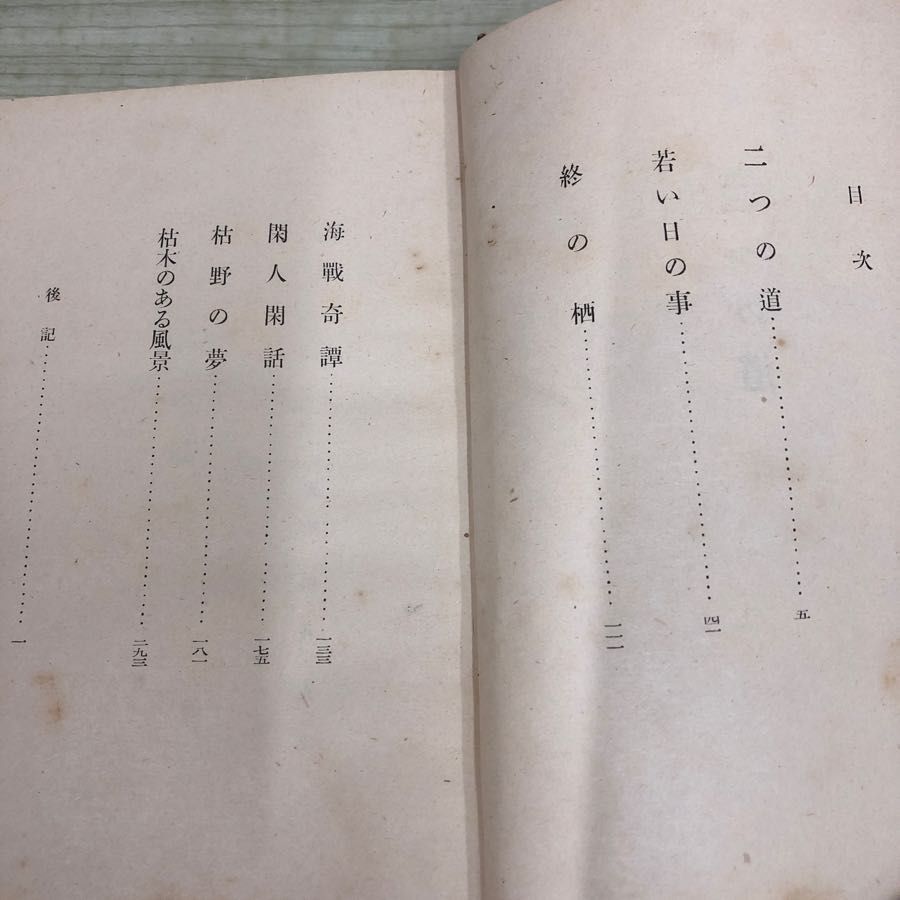 目次
二つの道……五
若い日の事……四一
終の栖……一一一
海戰奇譚……一三三
閑人閑話……一七五
枯野の夢……一八一
枯木のある風景……二九三
後記……一